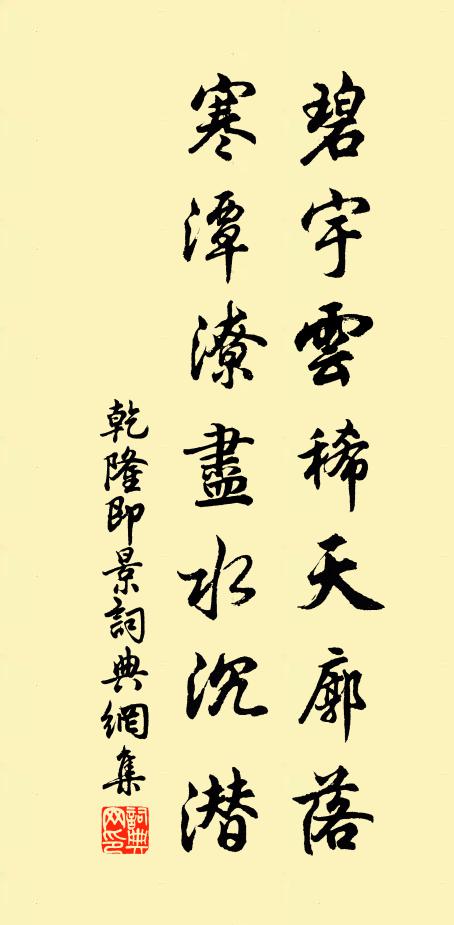 碧宇雲稀天廓落
寒潭潦盡水沉潜
乾隆即景詞典網集
詞典網印